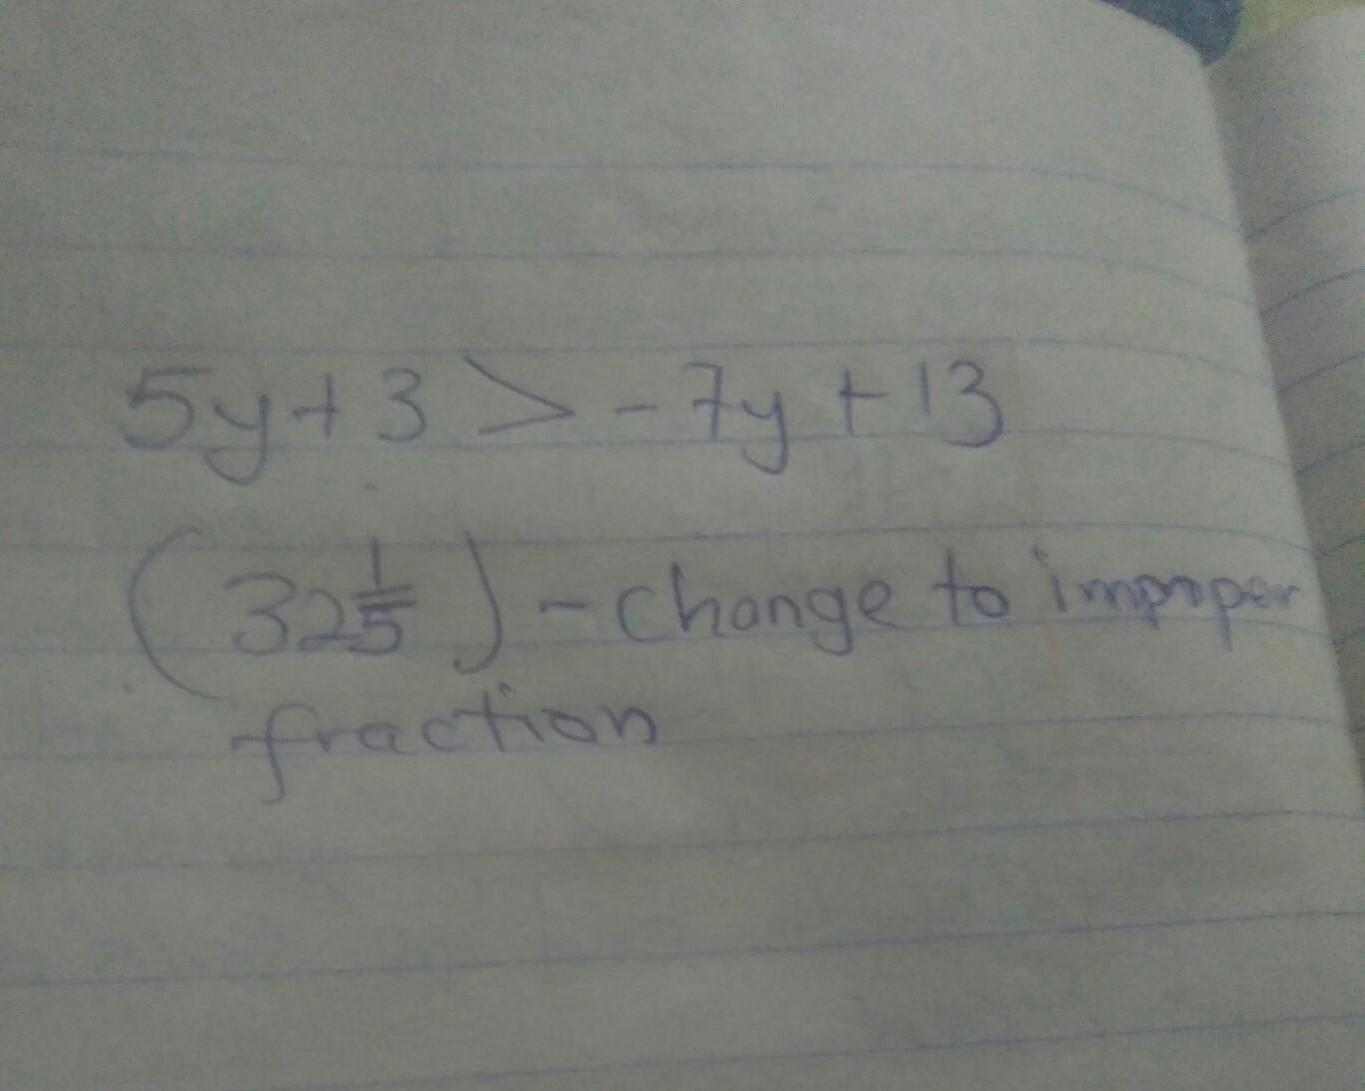 5y+3 > -7y +13
(32 1/5) - change to improper
fraction